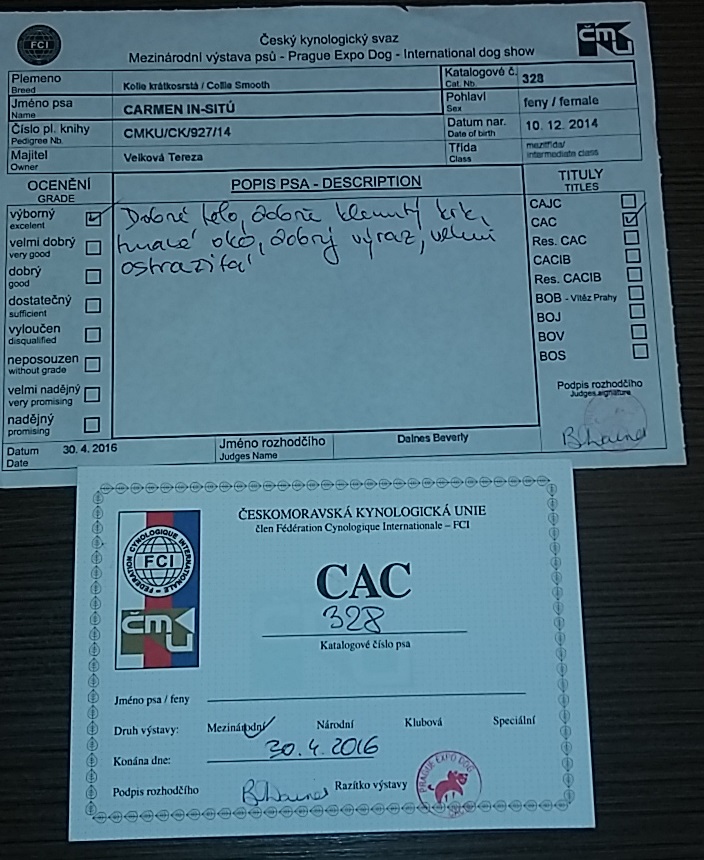 FCI
Český kynologický svaz
Mezinárodní výstava psů - Prague Expo Dog - International dog show
ČMKU
Plemeno
Breed
Kolie krátkosrstá / Collie Smooth
Katalogové č.
Cat. Nb.
328
Jméno psa
Name
CARMEN IN-SITÚ
Pohlaví
Sex
feny / female
Číslo pl. knihy
Pedigree Nb.
CMKU/CK/927/14
Datum nar.
Date of birth
10. 12. 2014
Majitel
Owner
Velková Tereza
Třída
Class
mezitřída/
intermediate class
OCENĚNÍ
GRADE
výborný
excelent
velmi dobrý
very good
dobrý
good
dostatečný
sufficient
vyloučen
disqualified
neposouzen
without grade
velmi nadějný
very promising
nadějný
promising
POPIS PSA - DESCRIPTION
Dobré tělo, dobře klenutý krk,
tmavé oko, dobrý výraz, velmi
ostražitá!
TITULY
TITLES
CAJC
CAC
Res. CAC
CACIB
Res. CACIB
BOB - Vítěz Prahy
BOJ
BOV
BOS
Podpis rozhodčího
Judges signature
Datum
Date
30. 4. 2016
Jméno rozhodčího
Judges Name
Daines Beverly
ČESKOMORAVSKÁ KYNOLOGICKÁ UNIE
člen Fédération Cynologique Internationale – FCI
FEDERATION CYNOLOGIQUE INTERNATIONALE
FCI
ČMKU
CAC
328
Katalogové číslo psa
Jméno psa / feny
Druh výstavy: Mezinárodní Národní Klubová Speciální
Konána dne: 30.4.2016
Podpis rozhodčího
Razítko výstavy
PRAGUE EXPO DOG